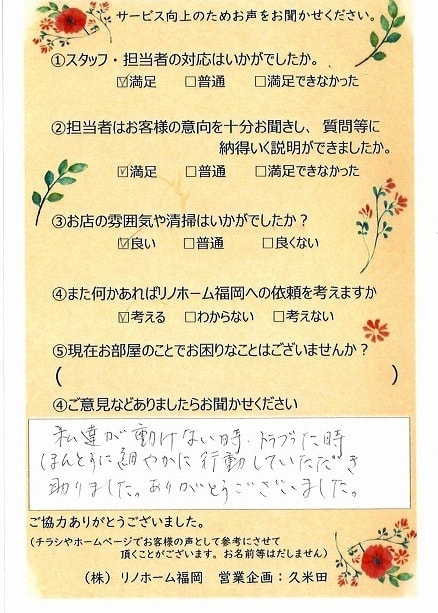 サービス向上のためお声をお聞かせください。
①スタッフ・担当者の対応はいかがでしたか。
☑満足 □普通 □満足できなかった
②担当者はお客様の意向を十分お聞きし、質問等に
納得いく説明ができましたか。
☑満足 □普通 □満足できなかった
③お店の雰囲気や清掃はいかがでしたか？
☑良い □普通 □良くない
④また何かあればリノホーム福岡への依頼を考えますか
☑考える □わからない □考えない
⑤現在お部屋のことでお困りなことはございませんか？
( )
④ご意見などありましたらお聞かせください
私達が動けない時、トラブった時
ほんとうに細やかに行動していただき
助りました。ありがとうございました。
ご協力ありがとうございました。
(チラシやホームページでお客様の声として参考にさせて
頂くことがございます。お名前等はだしません)
(株) リノホーム福岡 営業企画：久米田